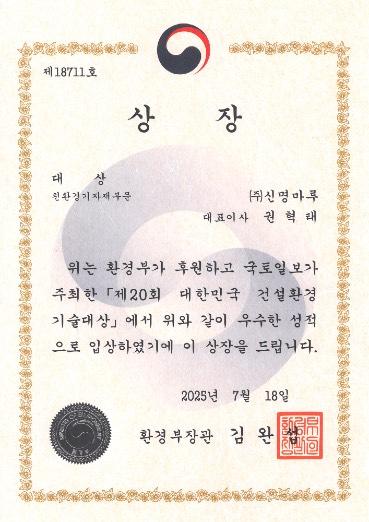 제18711호
상 장
대 상
친환경기자재부문
㈜신명마루
대표이사 권혁태
위는 환경부가 후원하고 국토일보가
주최한 「제20회 대한민국 건설환경
기술대상」에서 위와 같이 우수한 성적
으로 입상하였기에 이 상장을 드립니다.
2025년 7월 18일
환경부장관 김완섭